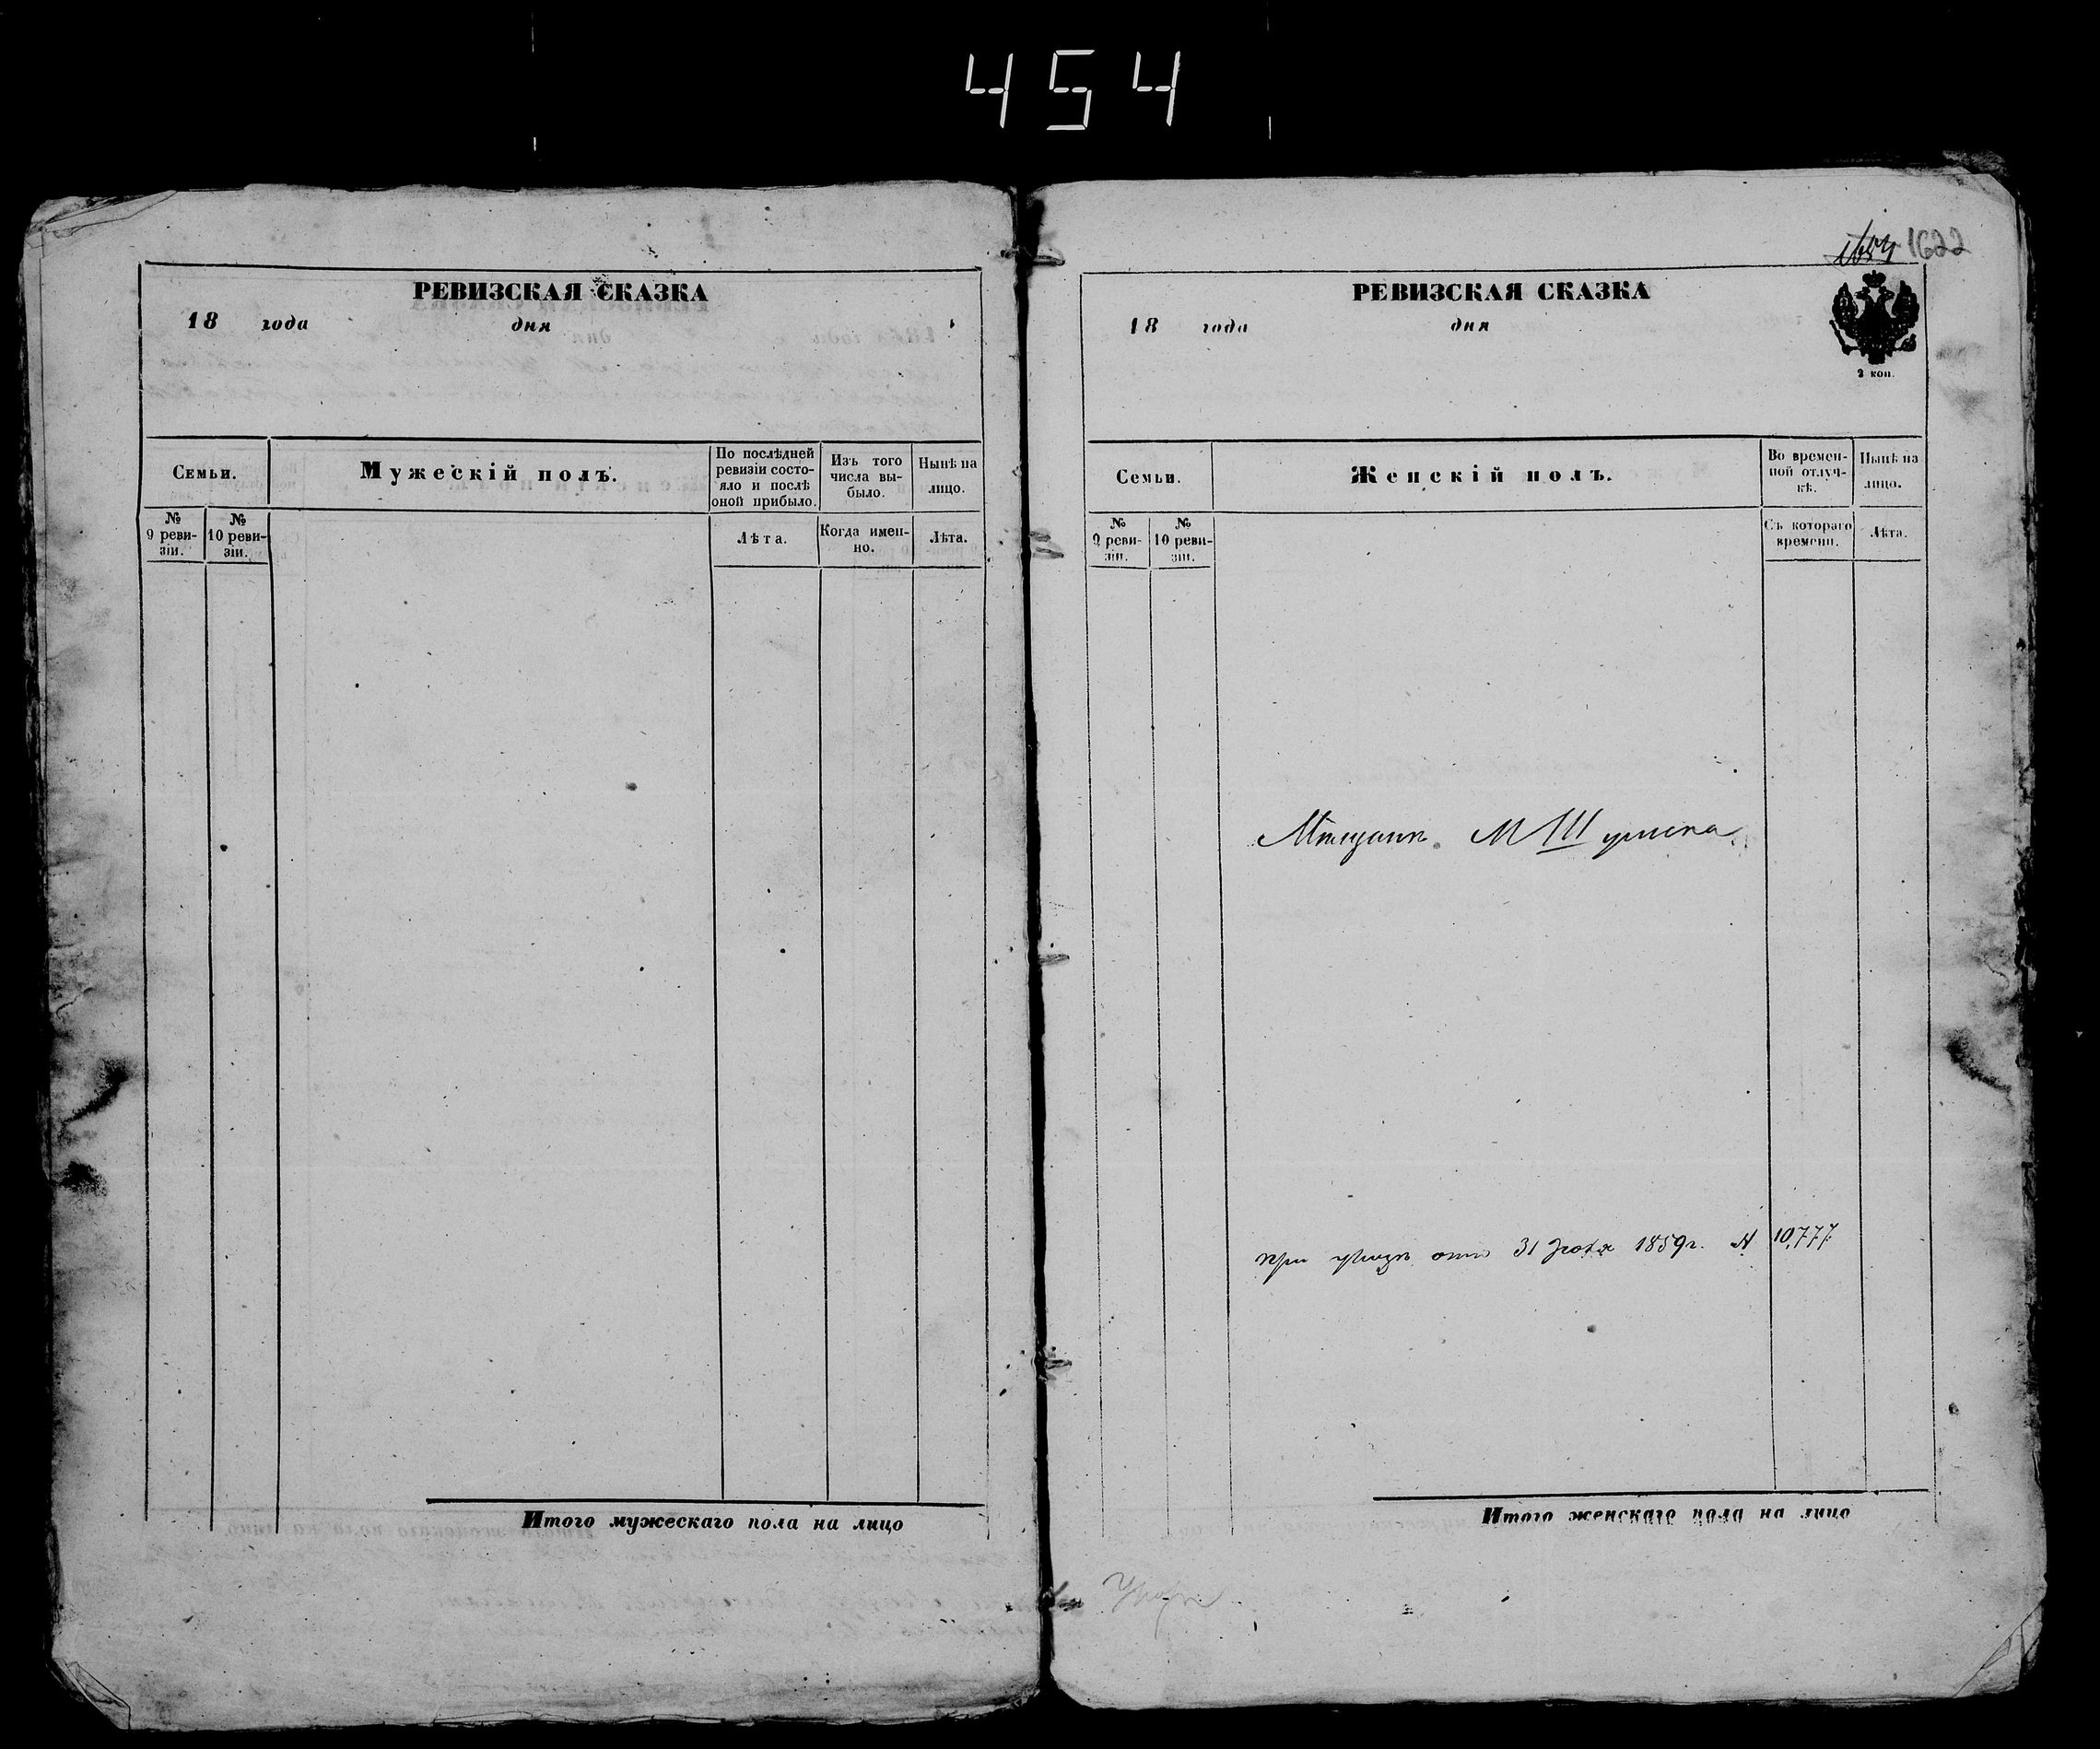 454
РЕВИЗСКАЯ СКАЗКА
18 года дня
Семьи.
Мужескій полъ.
По послѣдней
ревизіи состо-
яло и послѣ
оной прибыло.
Изъ того
числа вы-
было.
Нынѣ на
лицо.
№
9 реви-
зіи.
№
10 реви-
зіи.
Лѣта.
Когда имен-
но.
Лѣта.
Итого мужескаго пола на лицо
1622
РЕВИЗСКАЯ СКАЗКА
18 года дня
2 коп.
Семьи.
Женскій полъ.
Во времен-
ной отлуч-
кѣ.
Нынѣ на
лицо.
№
9 реви-
зіи.
№
10 реви-
зіи.
Съ котораго
времени.
Лѣта.
Мѣщанъ М III
при отъ 31 1859 г. № 10,777.
Итого женскаго пола на лицо